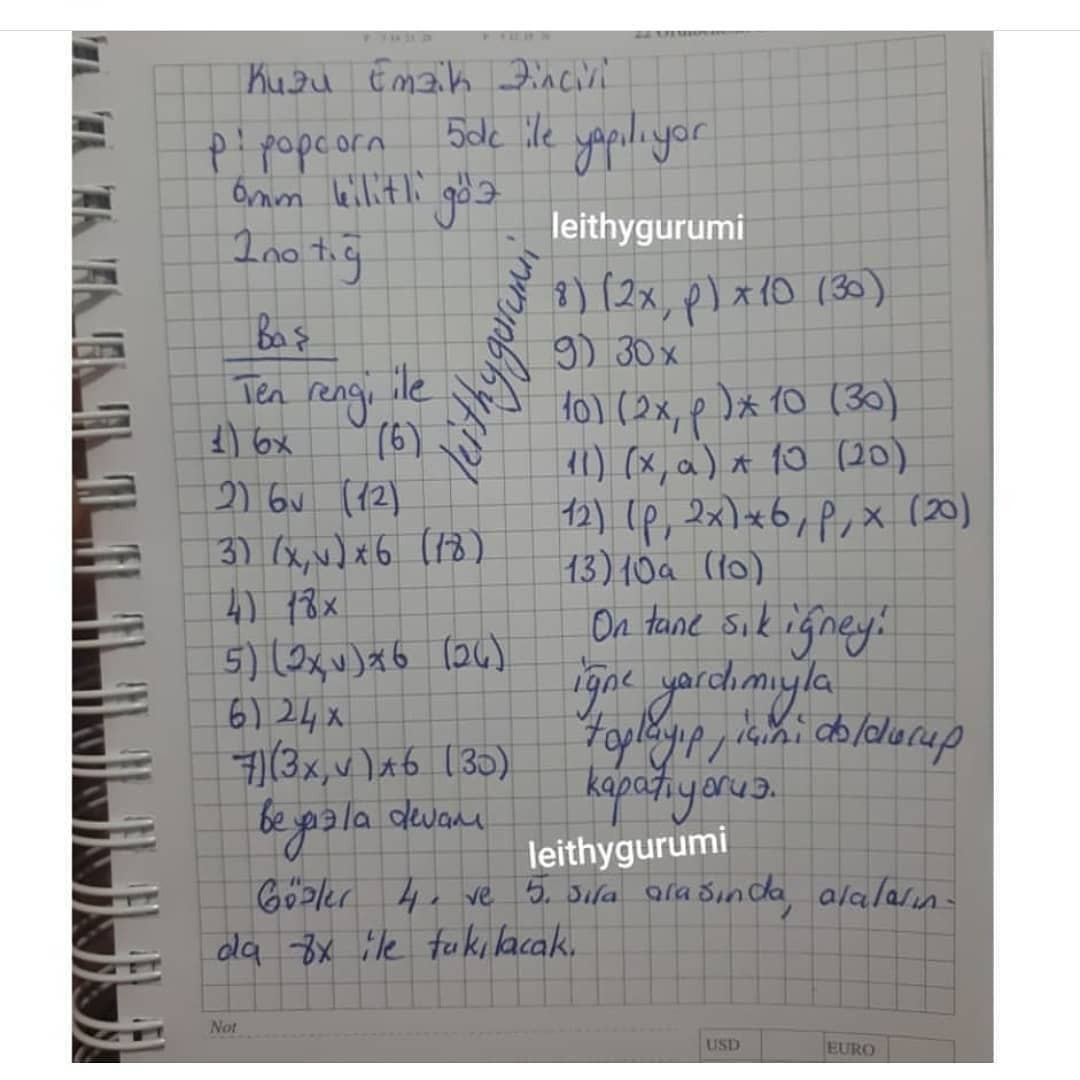 Kuzu Emzik Zinciri
p: popcorn 5dc ile yapılıyor
6mm kilitli göz
2no tığ
leithygurumi
leithygurumi
Baş
Ten rengi ile
1) 6x (6)
2) 6v (12)
3) (x,v)*6 (18)
4) 18x
5) (2x,v)*6 (24)
6) 24x
7) (3x,v)*6 (30)
Beyazla devam
8) (2x, p) *10 (30)
9) 30x
10) (2x, p)* 10 (30)
11) (x,a) * 10 (20)
12) (p, 2x)*6, p, x (20)
13) 10a (10)
On tane sık iğneyi
iğne yardımıyla
toplayıp, içini doldurup
kapatıyoruz.
leithygurumi
Gözler 4. ve 5. sıra arasında, araların-
da 8x ile takılacak.
Not
USD
EURO